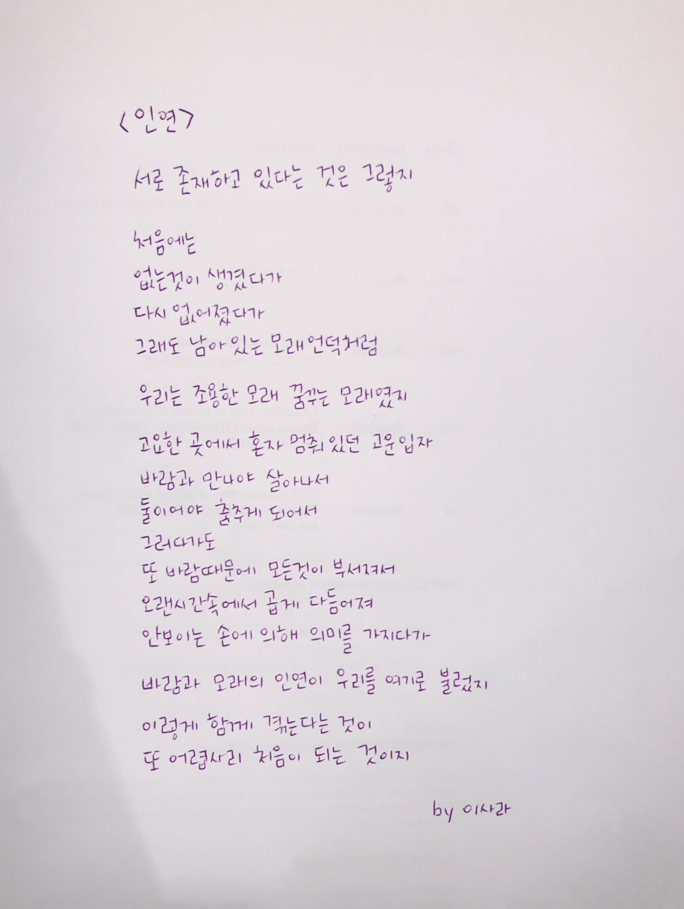 <인연>
서로 존재하고 있다는 것은 그렇지
처음에는
없는것이 생겼다가
다시 없어졌다가
그래도 남아있는 모래언덕처럼
우리는 조용한 모래 꿈꾸는 모래였지
고요한 곳에서 혼자 멈춰있던 고운입자
바람과 만나야 살아나서
둘이어야 춤추게 되어서
그러다가도
또 바람때문에 모든것이 부서져서
오랜시간속에서 곱게 다듬어져
안보이는 손에 의해 의미를 가지다가
바람과 모래의 인연이 우리를 여기로 불렀지
이렇게 함께 겪는다는 것이
또 어렵사리 처음이 되는 것이지
by 이사라